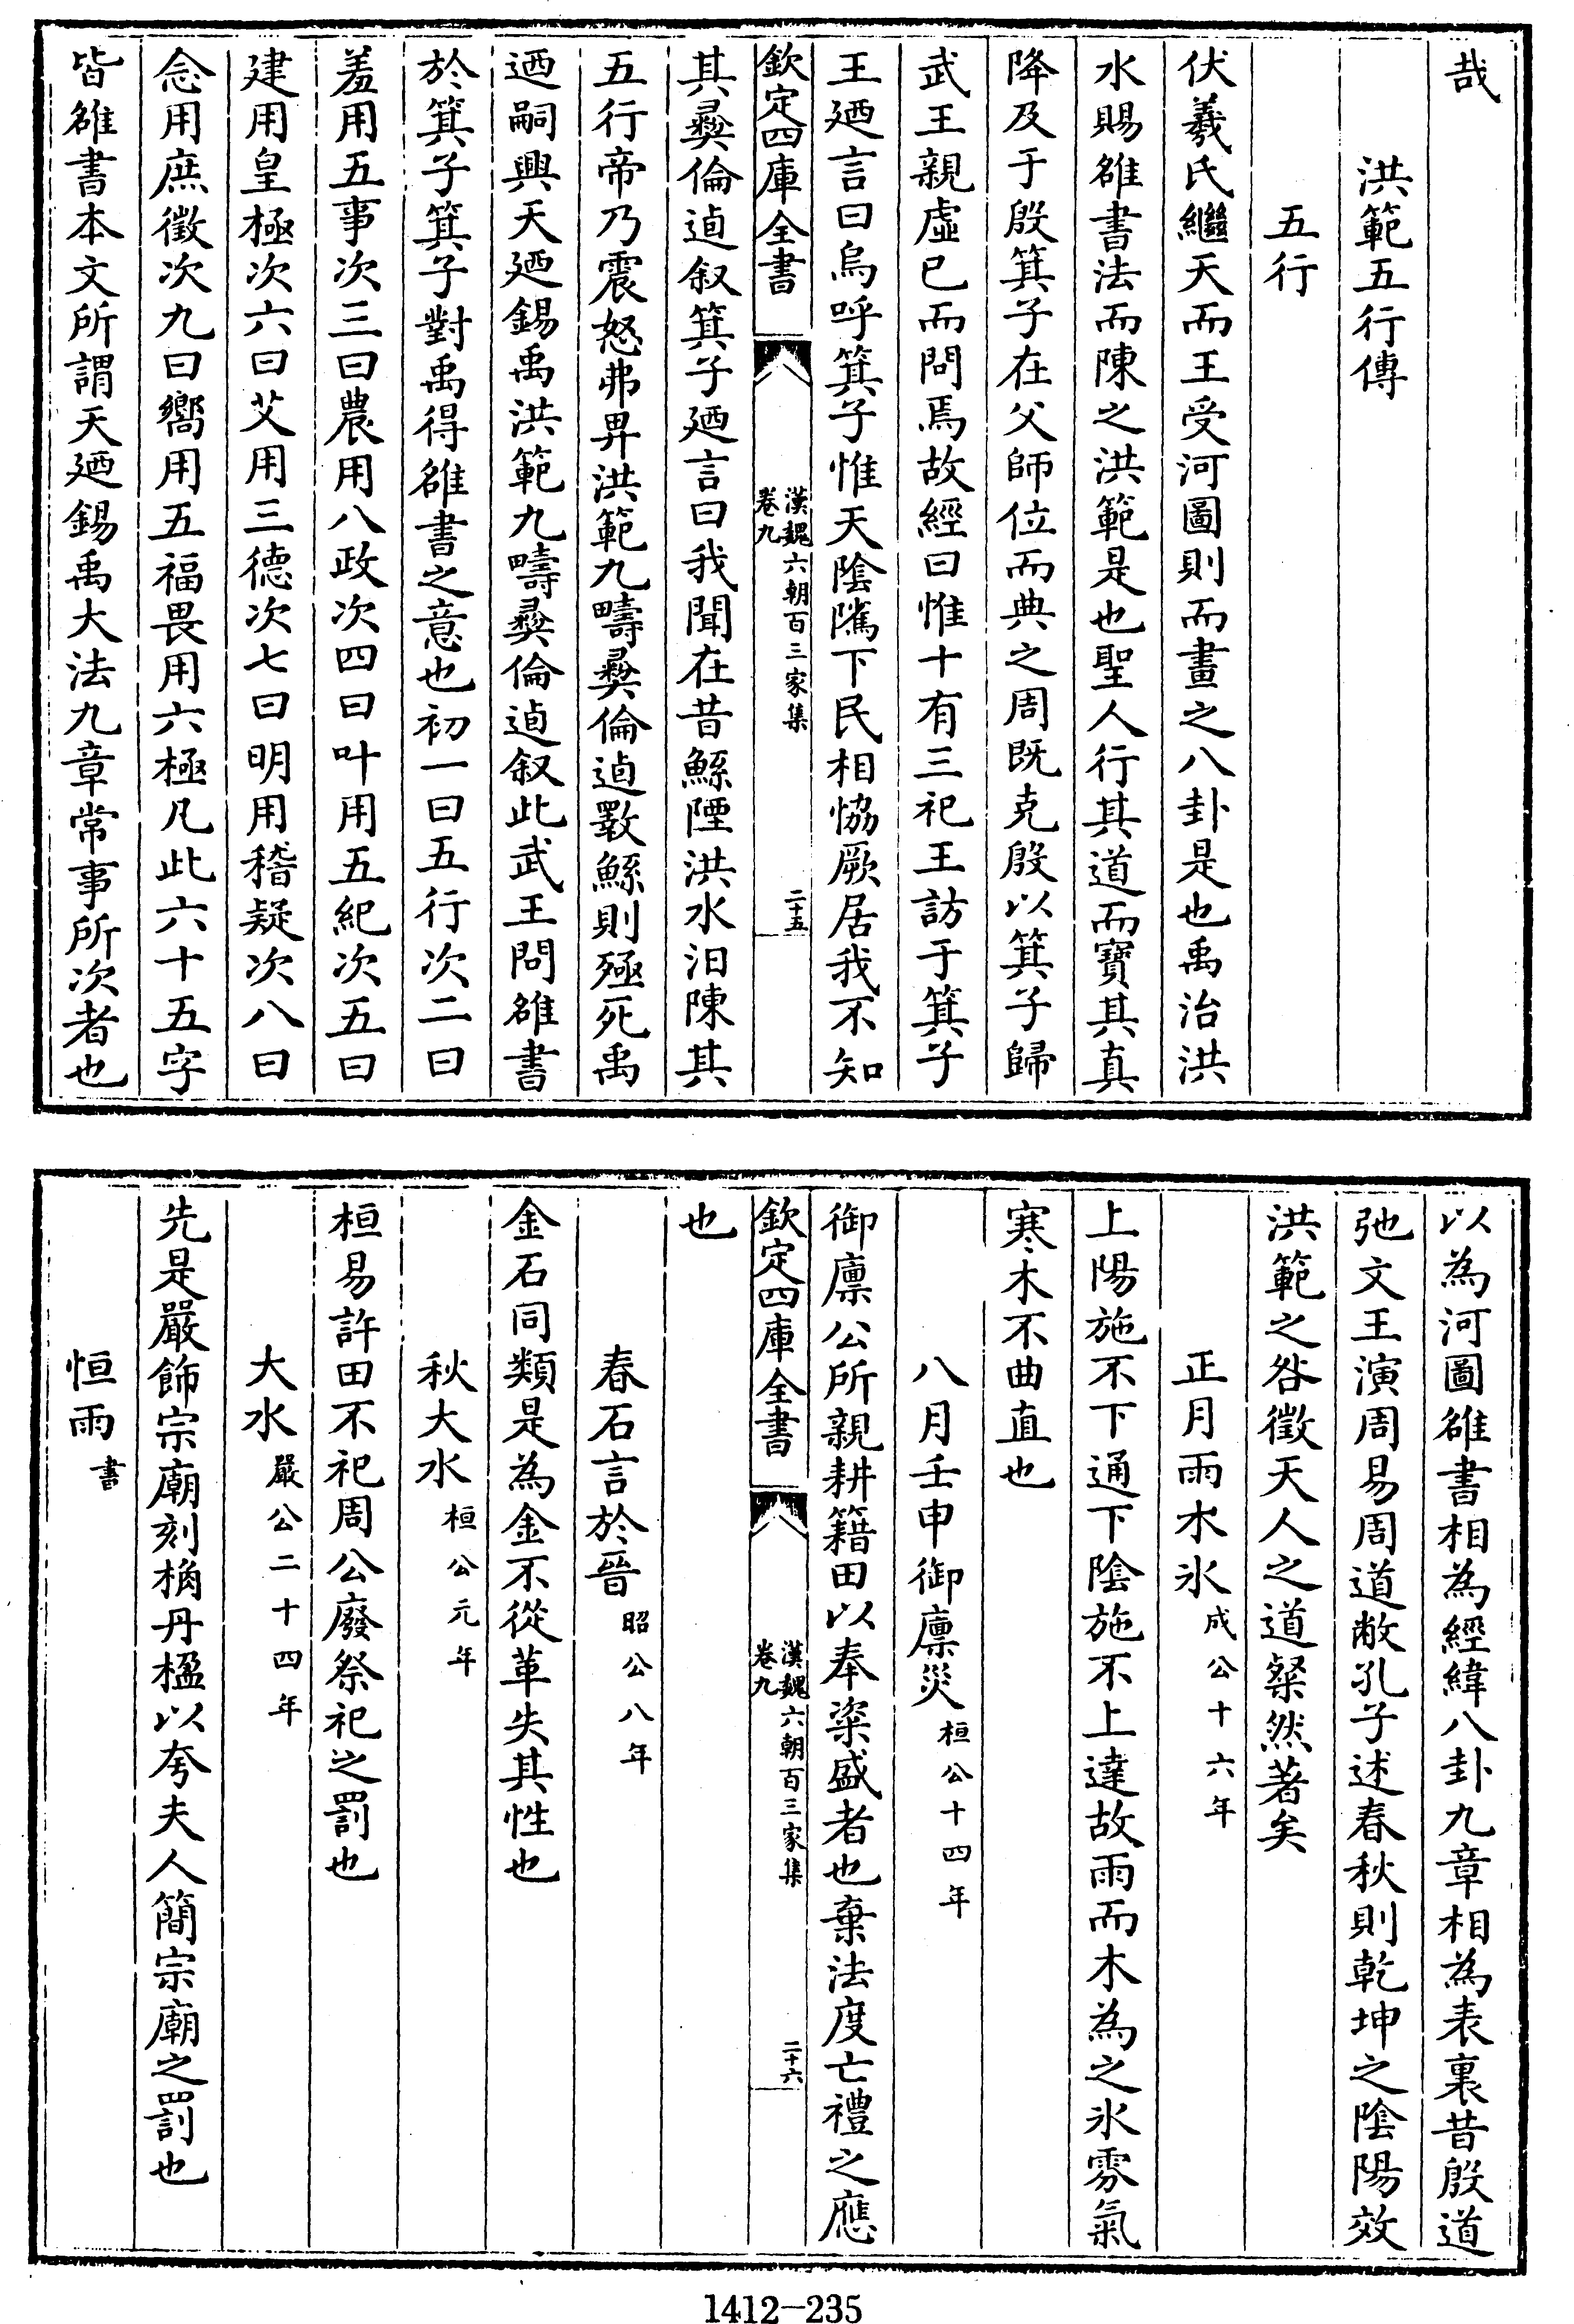 哉
洪範五行傳
五行
伏羲氏繼天而王受河圖則而畫之八卦是也禹治洪
水賜雒書法而陳之洪範是也聖人行其道而寶其真
降及于殷箕子在父師位而典之周既克殷以箕子歸
武王親虛已而問焉故經曰惟十有三祀王訪于箕子
王廼言曰烏呼箕子惟天陰隲下民相恊厥居我不知
欽定四庫全書 漢魏六朝百三家集 卷九 二十五
其彛倫逌叙箕子廼言曰我聞在昔鯀陻洪水汩陳其
五行帝乃震怒弗畀洪範九疇彛倫逌斁鯀則殛死禹
迺嗣興天廼錫禹洪範九疇彛倫逌叙此武王問雒書
於箕子箕子對禹得雒書之意也初一曰五行次二曰
羞用五事次三曰農用八政次四曰叶用五紀次五曰
建用皇極次六曰艾用三德次七曰明用稽疑次八曰
念用庶徵次九曰嚮用五福畏用六極凡此六十五字
皆雒書本文所謂天廼錫禹大法九章常事所次者也
以為河圖雒書相為經緯八卦九章相為表裏昔殷道
弛文王演周易周道敝孔子述春秋則乾坤之陰陽效
洪範之咎徵天人之道粲然著矣
正月雨木氷 成公十六年
上陽施不下通下陰施不上達故雨而木為之氷雰氣
寒木不曲直也
八月壬申御廪災 桓公十四年
御廪公所親耕籍田以奉粢盛者也棄法度亡禮之應
欽定四庫全書 漢魏六朝百三家集 卷九 二十六
也
春石言於晉 昭公八年
金石同類是為金不從革失其性也
秋大水 桓公元年
桓易許田不祀周公廢祭祀之罰也
大水 嚴公二十四年
先是嚴飾宗廟刻桷丹楹以夸夫人簡宗廟之罰也
恒雨 書
1412-235